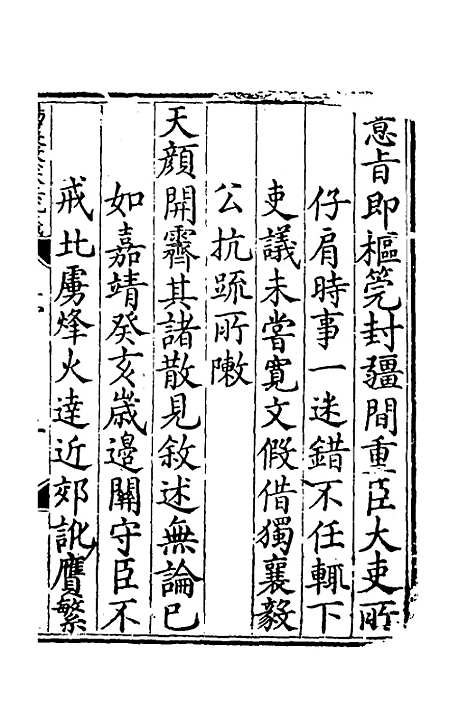 意旨即樞筦封疆間重臣大吏所
仔肩時事一迷錯不任輒下
吏議未嘗寛文假借獨襄毅
公抗䟽所𢾾
天顔開霽其諸散見敘述無論已
如嘉靖癸亥歲邊關守臣不
戒北虜烽火達近郊訛贗繁